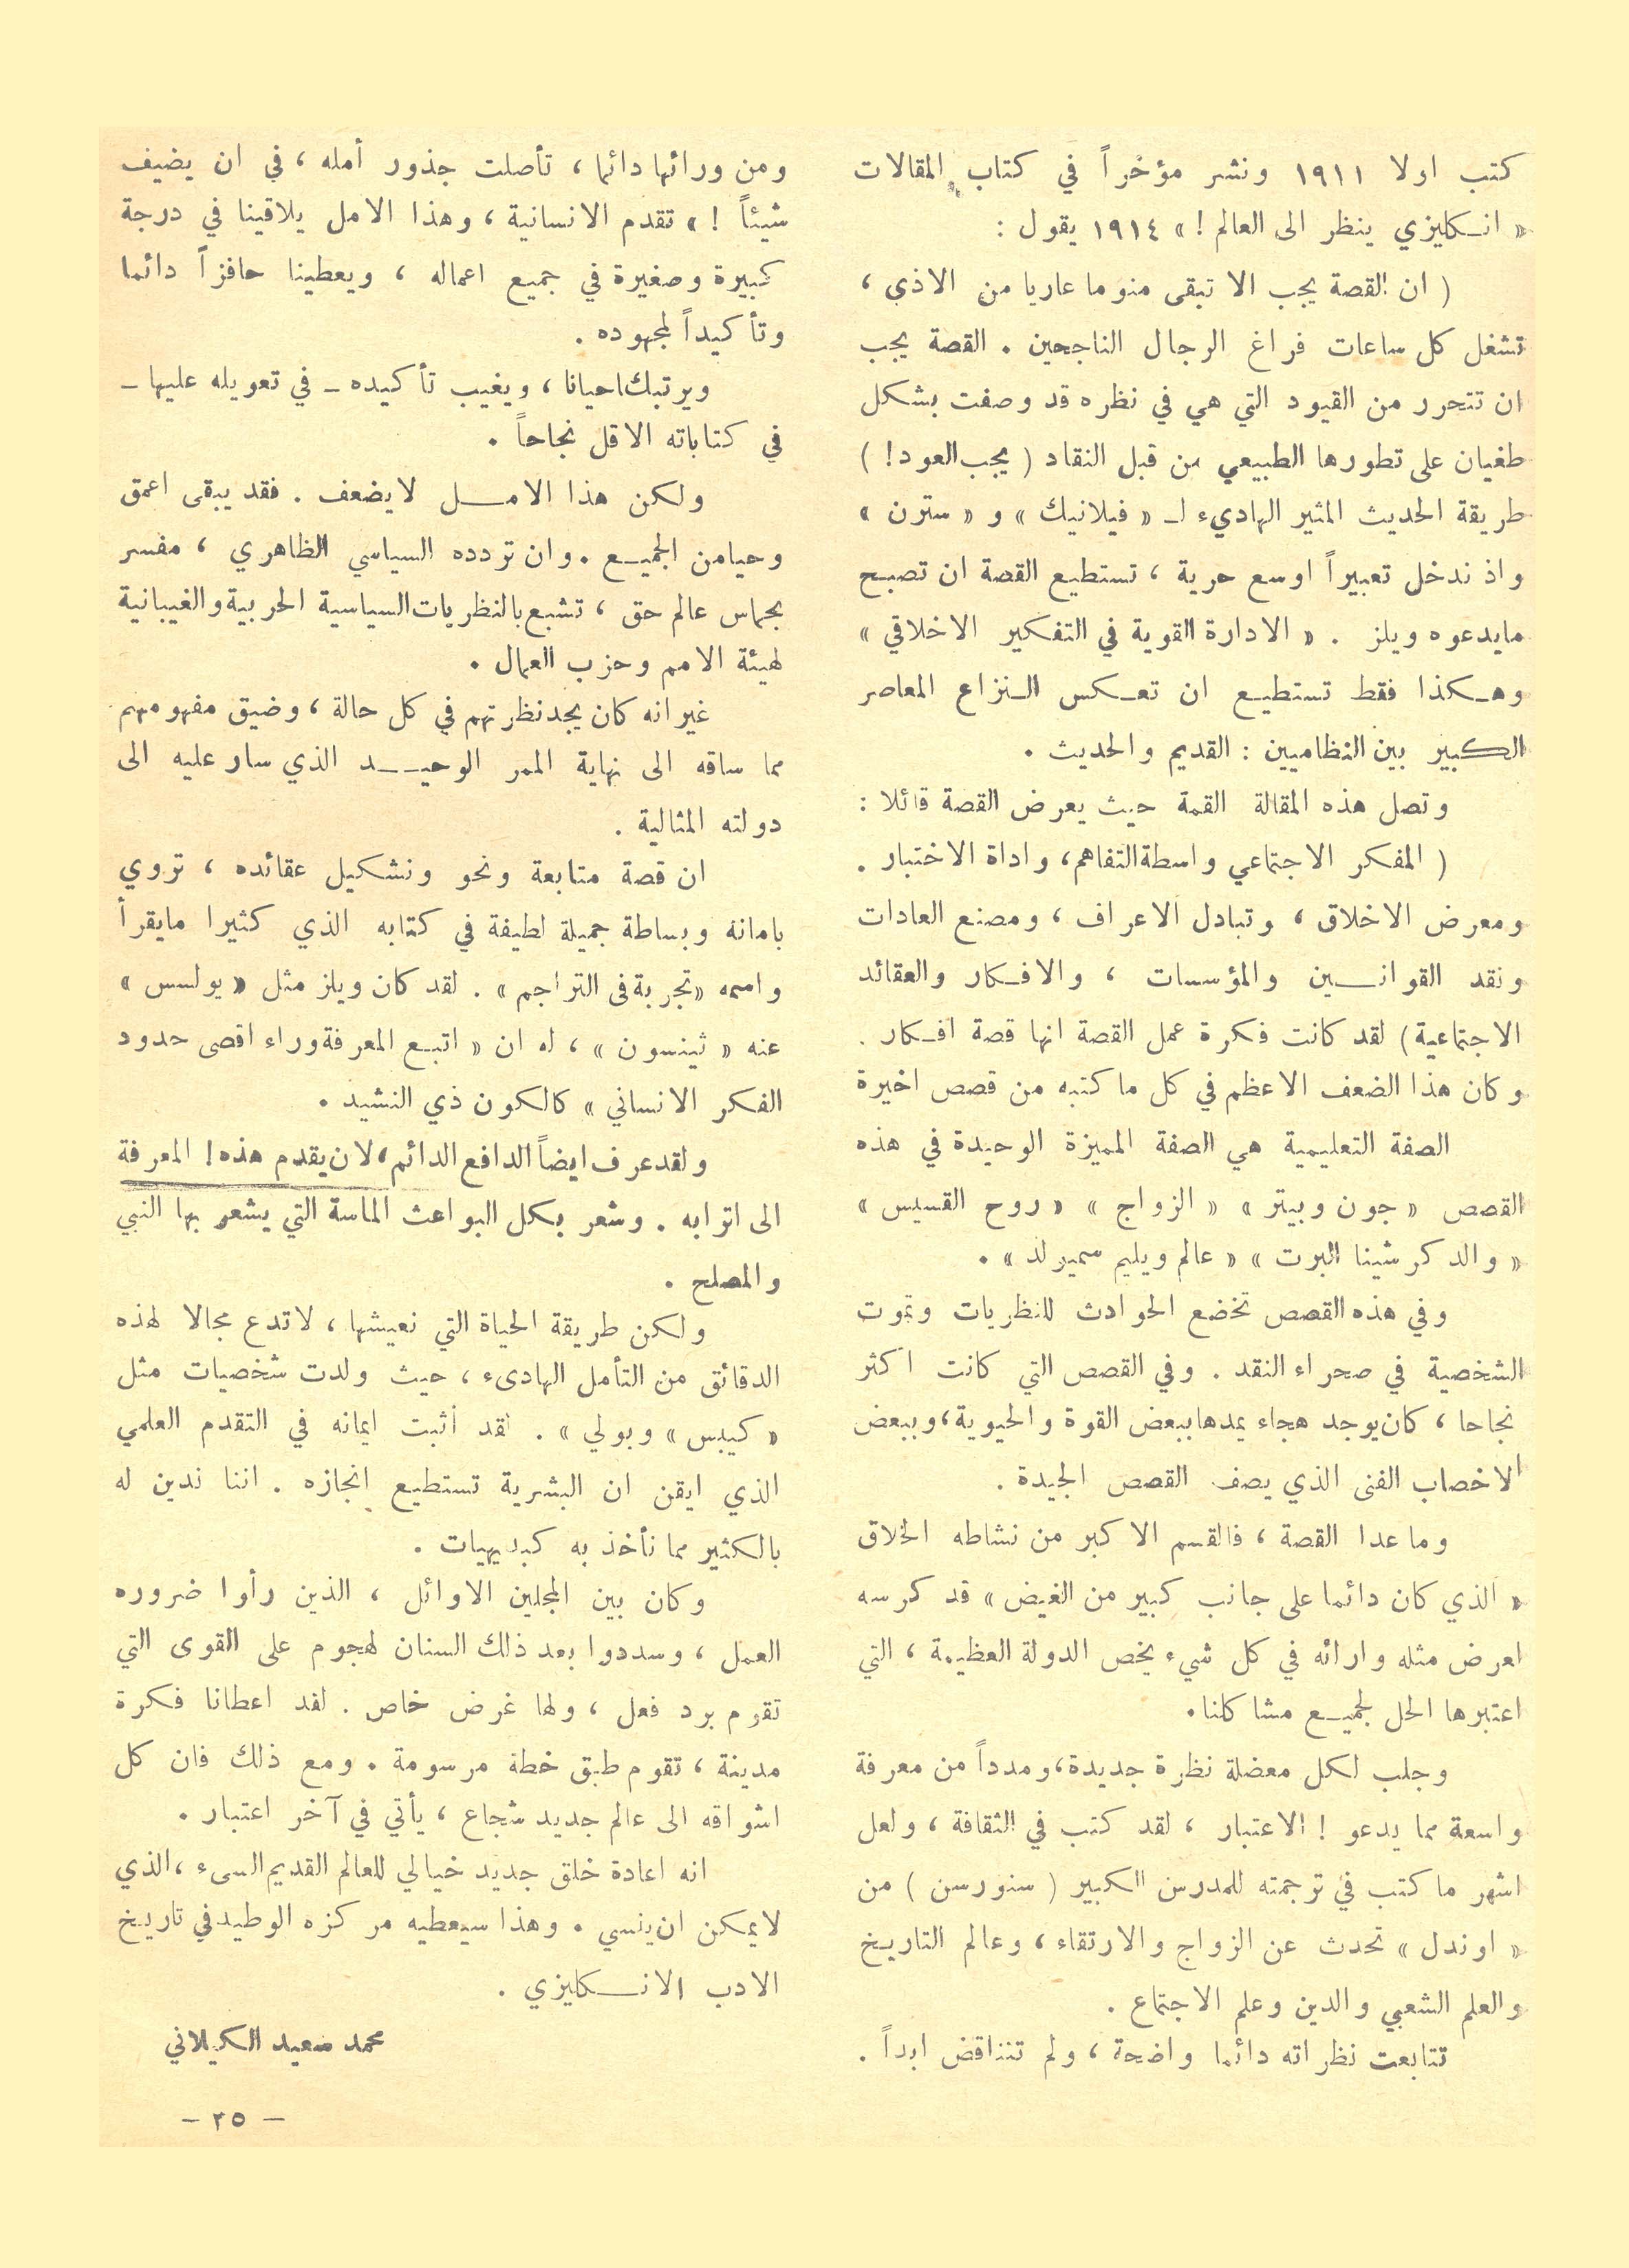 كتب اولا ١٩١١ ونشر مؤخراً في كتاب المقالات
« انكليزي ينظر الى العالم ! » ١٩١٤ يقول :
( ان القصة يجب الا تبقى منوما عاريا من الاذى ،
تشغل كل ساعات فراغ الرجال الناجحين . القصة يجب
ان تتحرر من القيود التي هي في نظره قد وصفت بشكل
طغيان على تطورها الطبيعي من قبل النقاد ( يجب العود ! )
طريقة الحديث المثير الهاديء لـ « فيلانيك » و « سترن »
واذ ندخل تعبيراً اوسع حرية ، تستطيع القصة ان تصبح
مايدعوه ويلز . « الادارة القوية في التفكير الاخلاقي »
وهكذا فقط تستطيع ان تعكس النزاع المعاصر
الكبير بين النظاميين : القديم والحديث .
وتصل هذه المقالة القمة حيث يعرض القصة قائلا :
( المفكر الاجتماعي واسطة التفاهم، واداة الاختبار .
ومعرض الاخلاق ، وتبادل الاعراف ، ومصنع العادات
ونقد القوانسين والمؤسسات ، والافكار والعقائد
الاجتماعية ) لقد كانت فكرة عمل القصة انها قصة افكار .
وكان هذا الضعف الاعظم في كل ما كتبه من قصص اخيرة
الصفة التعليمية هي الصفة المميزة الوحيدة في هذه
القصص « جون وبيتر » « الزواج » « روح القسيس »
« والد كرشينا البرت » « عالم ويليم سميرلد » .
وفي هذه القصص تخضع الحوادث للنظريات وتموت
الشخصية في صحراء النقد . وفي القصص التي كانت اكثر
نجاحا ، كان يوجد هجاء يمدها ببعض القوة والحيوية ، وببعض
الاخصاب الفنى الذي يصف القصص الجيدة .
وما عدا القصة ، فالقسم الاكبر من نشاطه الخلاق
« الذي كان دائما على جانب كبير من الغيض » قد كرسه
لعرض مثله وارائه في كل شيء يخص الدولة العظيمة ، التي
اعتبرها الحل لجميع مشاكلنا.
وجلب لكل معضلة نظرة جديدة، ومدداً من معرفة
واسعة مما يدعو ! الاعتبار ، لقد كتب في الثقافة ، ولعل
اشهر ما كتب في ترجمته للمدرس الكبير ( سنورسن ) من
« اوندل » تحدث عن الزواج والارتقاء ، وعالم التاريخ
والعلم الشعبي والدين وعلم الاجتماع .
تتابعت نظراته دائما واضحة ، ولم تتناقض ابداً .
ومن ورائها دائما ، تأصلت جذور أمله ، في ان يضيف
شيئاً ! » تقدم الانسانية ، وهذا الامل يلاقينا في درجة
كبيرة وصغيرة في جميع اعماله ، ويعطينا حافزاً دائما
وتأكيداً لمجهوده .
ويرتبك احيانا ، ويغيب تأكيده – في تعويله عليها –
في كتاباته الاقل نجاحاً .
ولكن هذا الامـل لايضعف . فقد يبقى اعمق
وحيامن الجميع . وان تردده السياسي الظاهري ، مفسر
بحماس عالم حق ، تشبع بالنظريات السياسية الحربية والغيبانية
لهيئة الامم وحزب العمال .
غير انه كان يجد نظرتهم في كل حالة ، وضيق مفهومهم
مما ساقه الى نهاية الممر الوحيـد الذي سار عليه الى
دولته المثالية .
ان قصة متابعة ونحو ونشكيل عقائده ، تروي
بامانة وبساطة جميلة لطيفة في كتابه الذي كثيرا مايقرأ
واسمه « تجربة فى التراجم » . لقد كان ويلز مثل « يولسس »
عنه « ثينسون » ، له ان « اتبع المعرفة وراء اقصى حدود
الفكر الانساني » كالكون ذي النشيد .
ولقد عرف ايضاً الدافع الدائم، لان يقدم هذه ! المعرفة
الى اترابه . وشعر بكل البواعث الماسة التي يشعر بها النبي
والمصلح .
ولكن طريقة الحياة التي نعيشها ، لاتدع مجالا لهذه
الدقائق من التأمل الهادىء ، حيث ولدت شخصيات مثل
« كيبس » وبولي » . لقد أثبت ايمانه في التقدم العلمي
الذي ايقن ان البشرية تستطيع انجازه . اننا ندين له
بالكثير مما نأخذ به كبديهيات .
وكان بين المجلين الاوائل ، الذين رأوا ضروره
العمل ، وسددوا بعد ذلك السنان لهجوم على القوى التي
تقوم برد فعل ، ولها غرض خاص . لقد اعطانا فكرة
مدينة ، تقوم طبق خطة مرسومة . ومع ذلك فان كل
اشواقه الى عالم جديد شجاع ، يأتي في آخر اعتبار .
انه اعادة خلق جديد خيالي للعالم القديم السىء ، الذي
لايمكن ان ينسي . وهذا سيعطيه مركزه الوطيد في تاريخ
الادب الانـكليزي .
محمد سعيد الكيلاني
– ٢٥ –